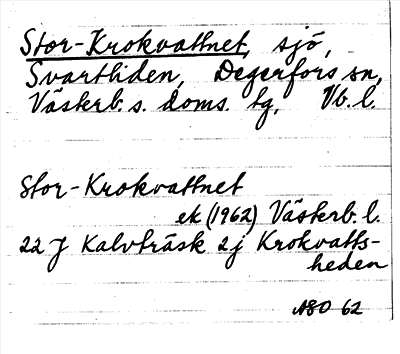 Stor-Krokvattnet, sjö,
Svartliden, Degerfors sn,
Västerb. s. doms. tg, Vb. l.
Stor-Krokvattnet
ek (1962) Västerb. l.
22 J Kalvträsk 2j Krokvatts-
heden
ABO 62